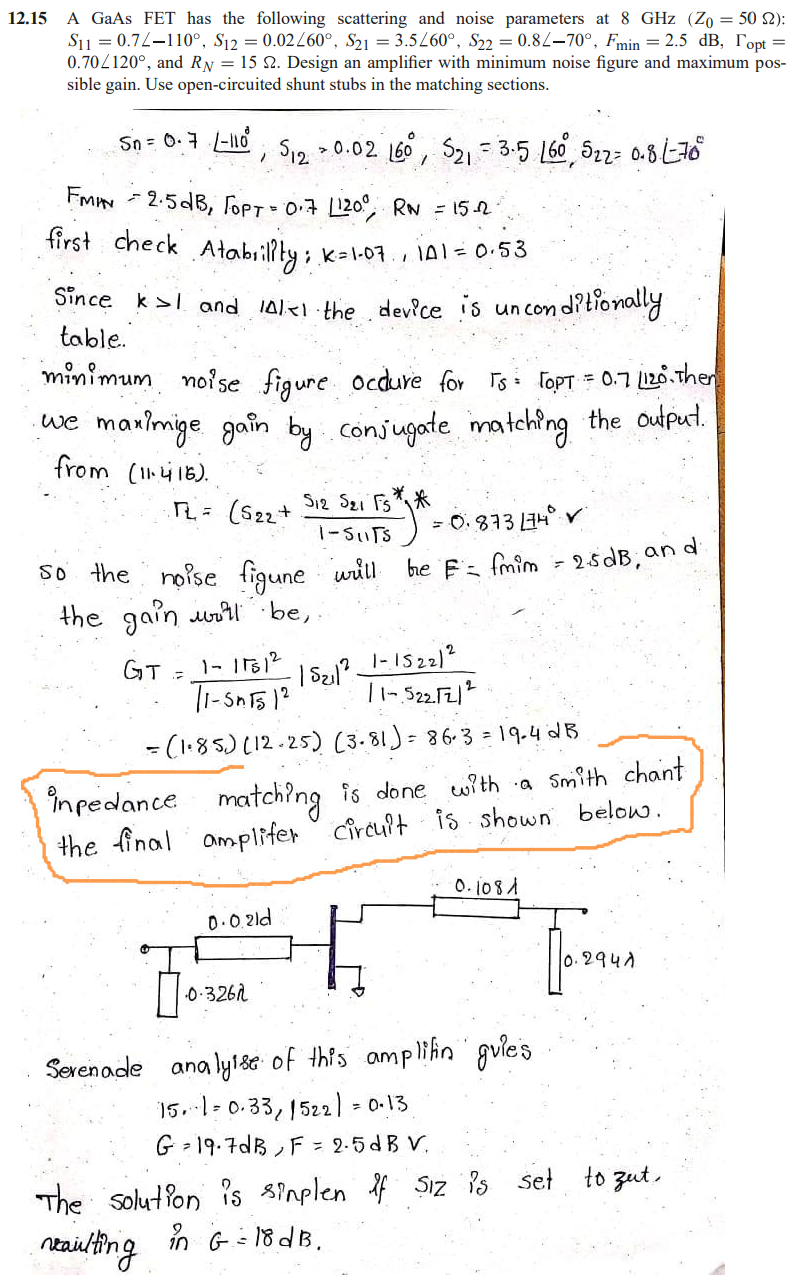 12.15 A GaAs FET has the following scattering and noise parameters at 8 GHz (Z₀ = 50 Ω):
S₁₁ = 0.7∠−110°, S₁₂ = 0.02∠60°, S₂₁ = 3.5∠60°, S₂₂ = 0.8∠−70°, F_min = 2.5 dB, Γ_opt =
0.70∠120°, and R_N = 15 Ω. Design an amplifier with minimum noise figure and maximum pos-
sible gain. Use open-circuited shunt stubs in the matching sections.
Sn = 0.7 ∠-110°, S12 > 0.02 ∠60°, S21 = 3.5 ∠60°, S22 = 0.8∠-70°
FMIN = 2.5dB, ΓOPT = 0.7 ∠120°, RN = 15Ω
first check Atability; K=1.07, |Δ| = 0.53
Since k>1 and |Δ|<1 the device is unconditionally
table.
minimum noise figure ocdure for Γs = ΓOPT = 0.7 ∠120°. Then
we maximige gain by conjugate matching the output.
from (11.416).
ΓL = (S22 + S12 S21 Γs* / 1-S11Γs)* = 0.873 ∠74° ✓
so the noise figune will be F = fmim = 2.5dB, and
the gain will be,
GT = 1-|Γs|² / |1-SnΓs|² |S21|² 1-|S22|² / |1-S22ΓL|²
= (1.85) (12.25) (3.81) = 86.3 = 19.4 dB
inpedance matching is done with a smith chant
the final amplifer circuit is shown below.
0.108λ
0.021d
0.294λ
0.326λ
Serenade analyise of this amplifin gvies
15..1 = 0.33, |522| = 0.13
G = 19.7dB, F = 2.5dB V.
The solution is sinplen if S12 is set to zut.
in G = 18dB.